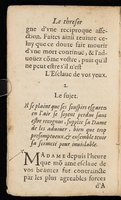 Le thresor
gne d'vne reciproque affe-
ction. Faites ainsi reuiure ce-
luy que ce doute fait mourir
d'vne mort continuë, & l'ad-
uouëz côme vostre, puis qu'il
ne peut estre s'il n'est
L'Esclaue de voz yeux.
2.
Le sujet.
Il se plaint que ses souspirs esgarez
en l'air se soyent perdus sans
estre receuz, supplie sa Dame
de les aduouer, bien que trop
presomptueux, & ensemble tenir
sa licence pour inuiolable.
MADAME depuis l'heure
que mō ame esclaue de
voz beautez fut contraincte
par les plus agreables forces
d'A